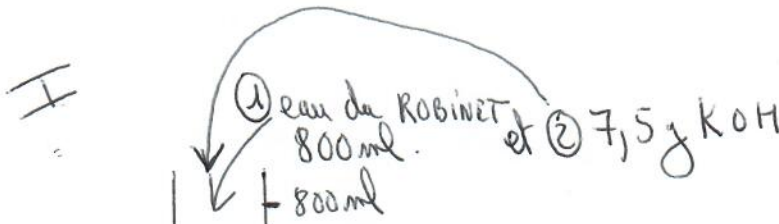 I
① eau du ROBINET
800 ml. et ② 7,5 g KOH
800 ml